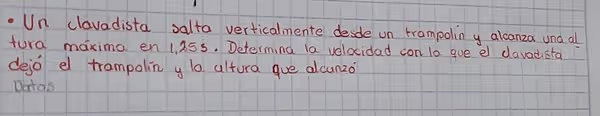 • Un clavadista salta verticalmente desde un trampolín y alcanza una al
tura máxima en 1,25s. Determina la velocidad con la que el clavadista
dejó el trampolín y la altura que alcanzó
Datos